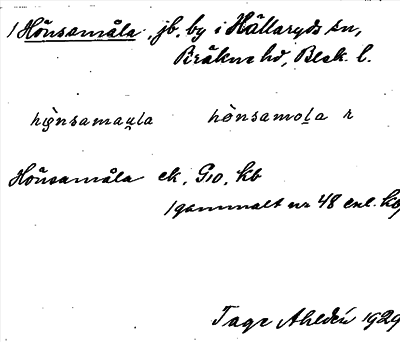 1 Hönsamåla, jb. by i Hällaryds sn,
Bräkne hd, Blek. l.
hönsamola r
Hönsamåla ek. G10. Kb
1 gammalt nr 48 enl. Kb
Tage Ahldén 1929